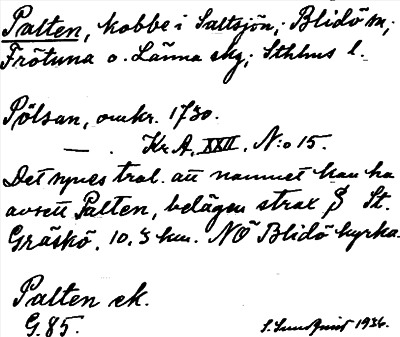 Palten, kobbe i Saltsjön, Blidö sn,
Frötuna o. Länna skg, Sthlms l.
Pölsan, omkr. 1730.
— . Kr. A. XXII, N:o 15.
Det synes trol. att namnet kan ha
avsett Palten, belägen strax S St.
Gräskö, 10.3 km. NÖ Blidö kyrka.
Palten ek.
G. 85.
S. Lundqvist 1936.